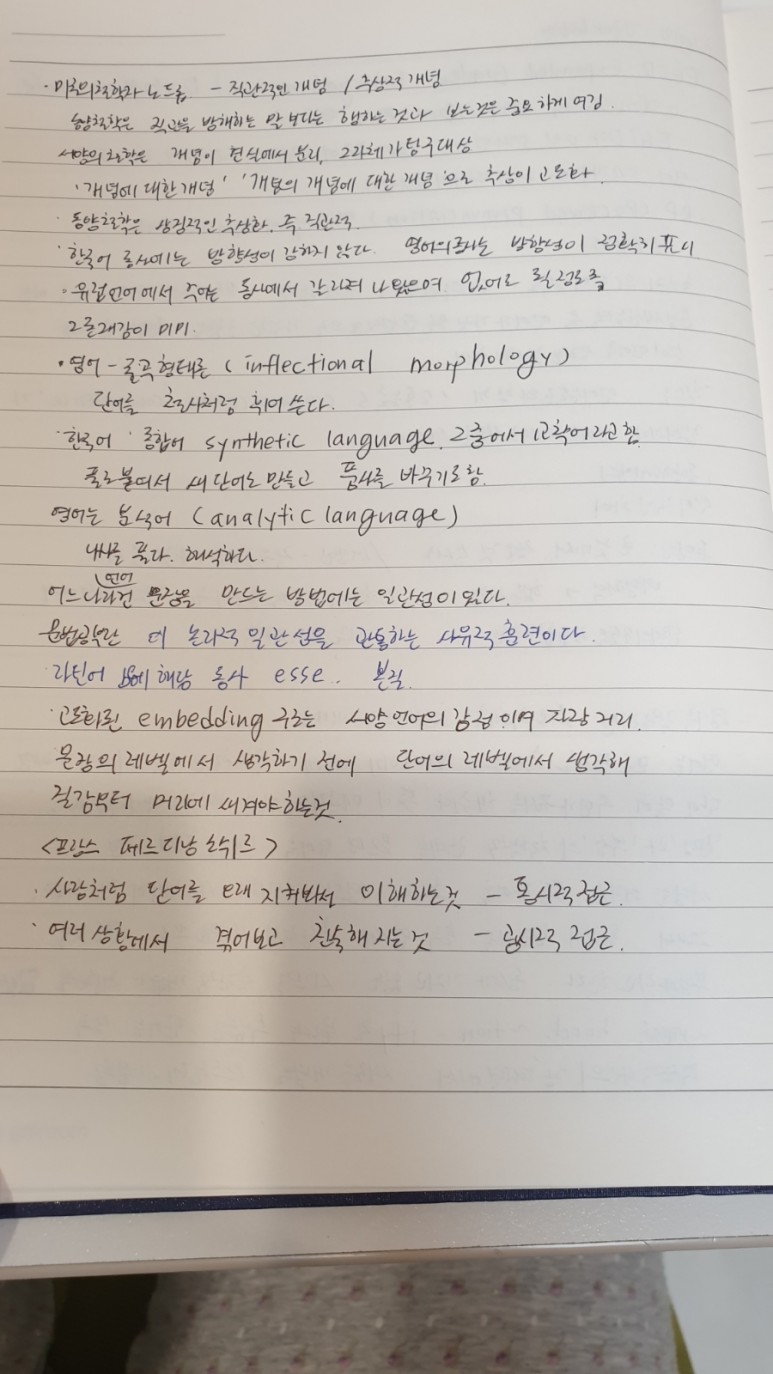 · 미국의철학자 노드롭 - 직관적인 개념 / 추상적 개념
동양철학은 직관을 방해하는 말 보다는 행하는 것과 보는것을 중요하게 여김.
서양의 철학은 개념이 현실에서 분리, 그자체가 탐구대상
· '개념에 대한개념' '개념의 개념에 대한 개념'으로 추상이 고도화.
· 동양철학은 상징적인 추상화. 즉 직관적.
· 한국어 동사에는 방향성이 강하지 않다. 영어의동사는 방향성이 정확히 표시
· 유럽언어에서 주어는 동사에서 갈라져 나왔으며 언어로
그존재감이 미미.
· 영어 - 굴곡형태론 (inflectional morphology)
단어를 철사처럼 휘어 쓴다.
· 한국어 종합어 synthetic language. 그중에서 교착어라고함.
풀로붙여서 새단어도 만들고 품사를 바꾸기도함.
영어는 분석어 (analytic language)
풀다. 해석하다.
어느나라건 언어 문장을 만드는 방법에는 일관성이 있다.
문법공부란 이 논리적 일관성을 관통하는 사유적 훈련이다.
라틴어 be에해당 동사 esse. 본질.
· 고도화된 embedding 구조는 서양언어의 강점 이며 자랑 거리.
문장의 레벨에서 생각하기 전에 단어의 레벨에서 생각해
질감부터 머리에 새겨야하는것.
<프랑스 페르디낭 소쉬르>
· 사람처럼 단어를 오래 지켜봐서 이해하는것 - 통시적접근.
· 여러 상황에서 겪어보고 친숙해 지는 것 - 공시적 접근.